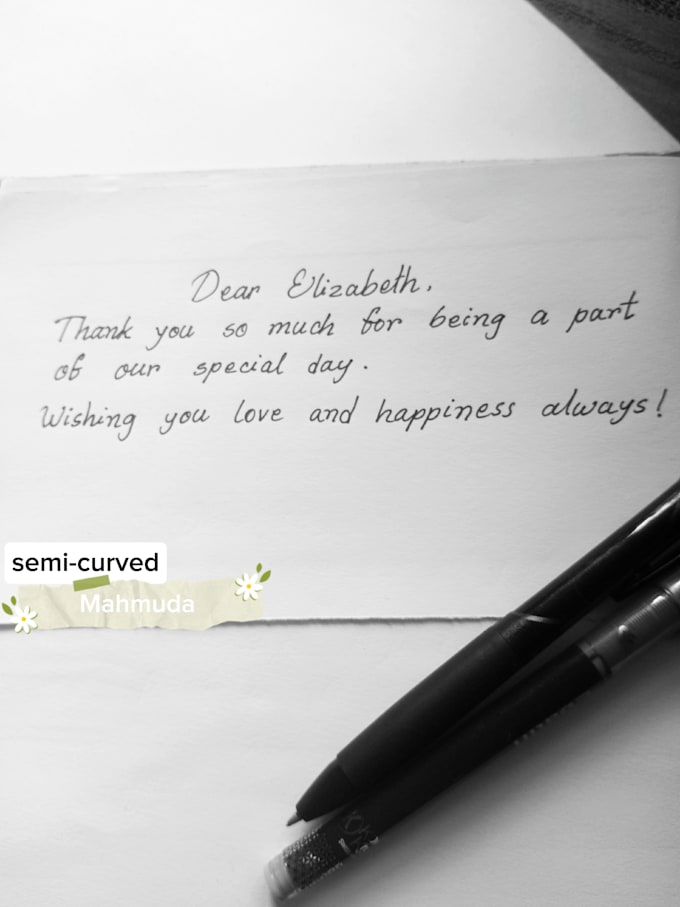 Dear Elizabeth,
Thank you so much for being a part
of our special day.
Wishing you love and happiness always!
semi-curved
Mahmuda